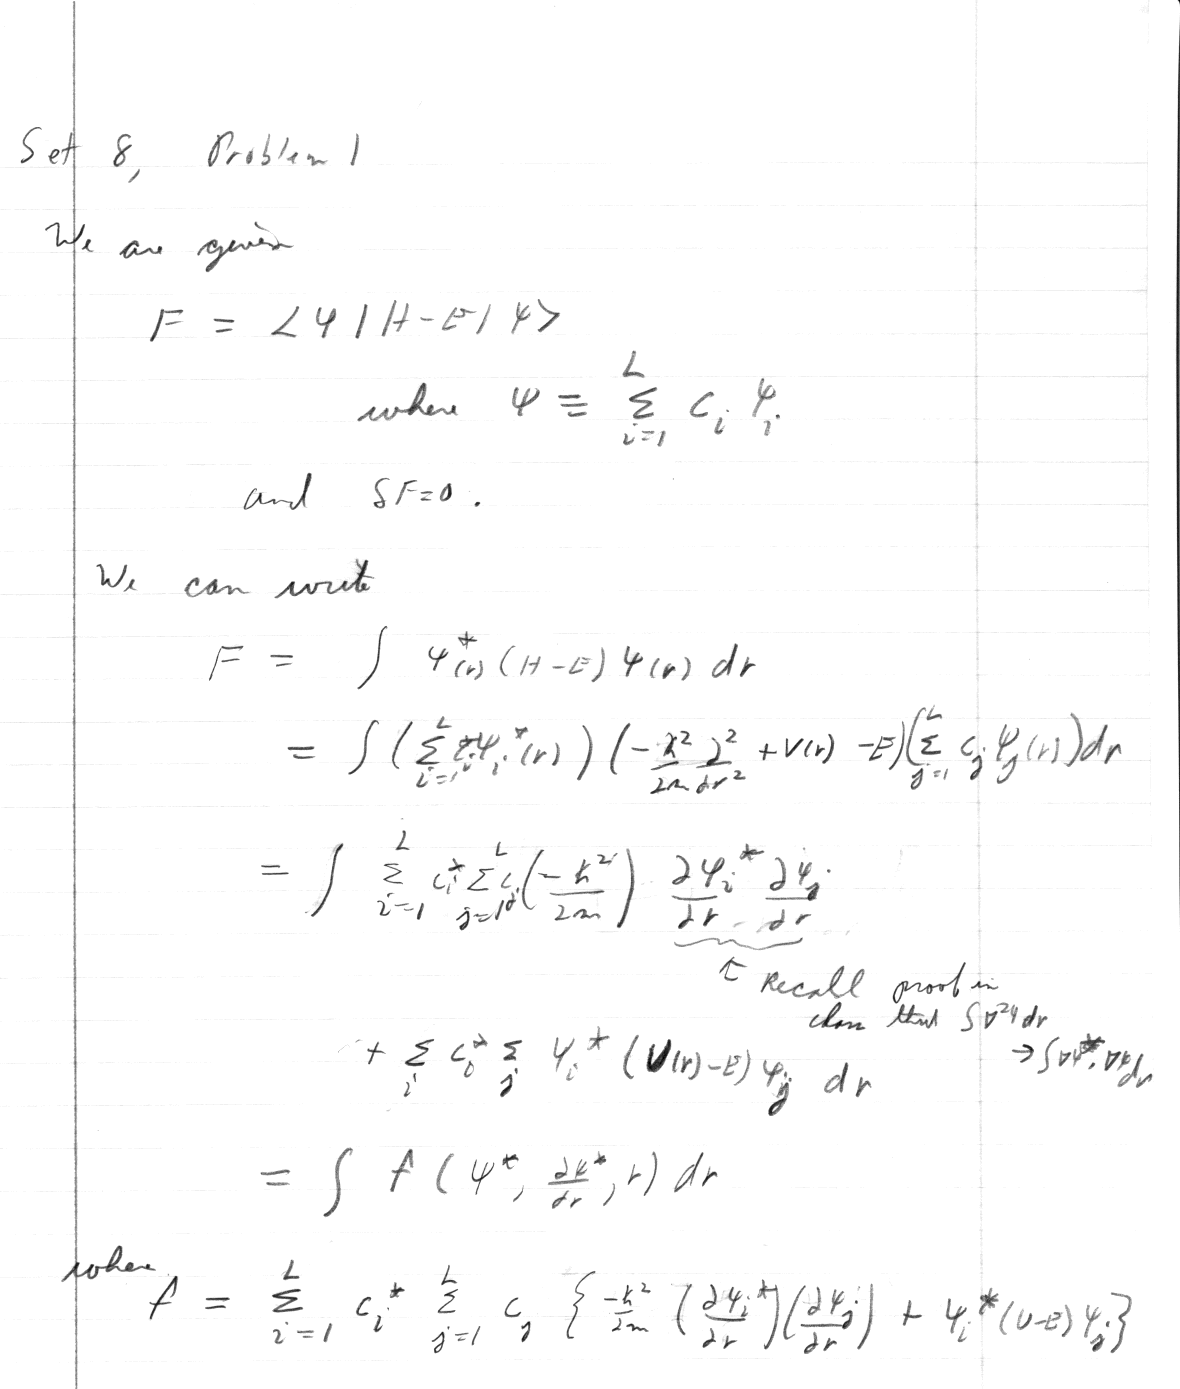 Set 8, Problem 1
We are given
F = <ψ|H-E|ψ>
where ψ ≡ Σ_{i=1}^{L} c_i ψ_i
and δF=0.
We can write
F = ∫ ψ*(r) (H-E) ψ(r) dr
= ∫ (Σ_{i=1}^{L} c_i* ψ_i*(r)) (-ħ²/2m ∂²/∂r² + V(r) - E) (Σ_{j=1}^{L} c_j ψ_j(r)) dr
= ∫ Σ_{i=1}^{L} c_i* Σ_{j=1}^{L} c_j (-ħ²/2m) ∂ψ_i*/∂r ∂ψ_j/∂r
↑ Recall proof in
class that ∫∇²ψ dr
→ ∫∇ψ*·∇ψ dr
+ Σ_i c_i* Σ_j ψ_i* (V(r)-E) ψ_j dr
= ∫ f (ψ*, ∂ψ*/∂r, r) dr
where
f = Σ_{i=1}^{L} c_i* Σ_{j=1}^{L} c_j {-ħ²/2m (∂ψ_i*/∂r)(∂ψ_j/∂r) + ψ_i*(V-E)ψ_j}